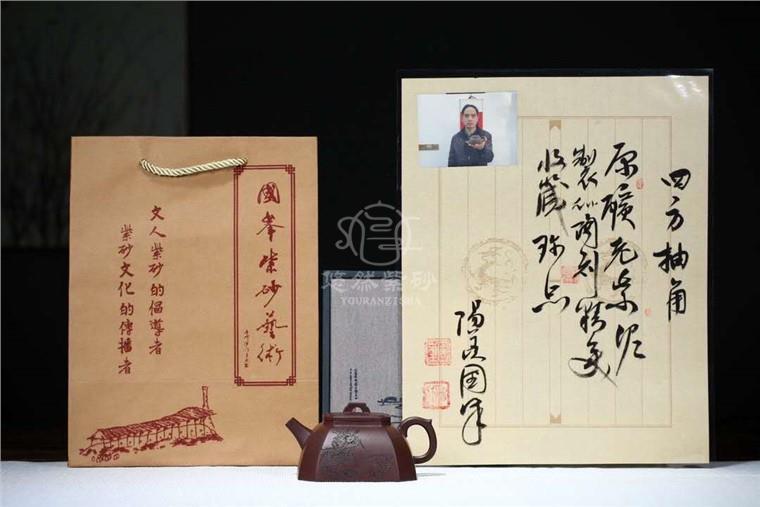 國峯紫砂藝術
文人紫砂的倡導者
紫砂文化的傳播者
悠然紫砂
YOURANZISHA
四方抽角
原礦老紫泥
製作陶刻精美
收藏珍品